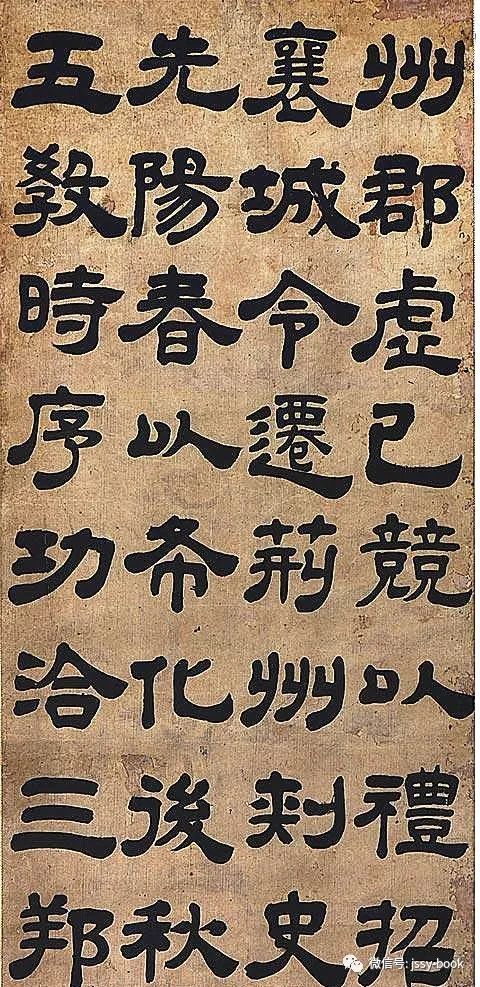 州郡虛己競以禮招
襄城令遷荊州刺史
先陽春以布化後秋
五教時序功洽三邦
微信号: jssy-book